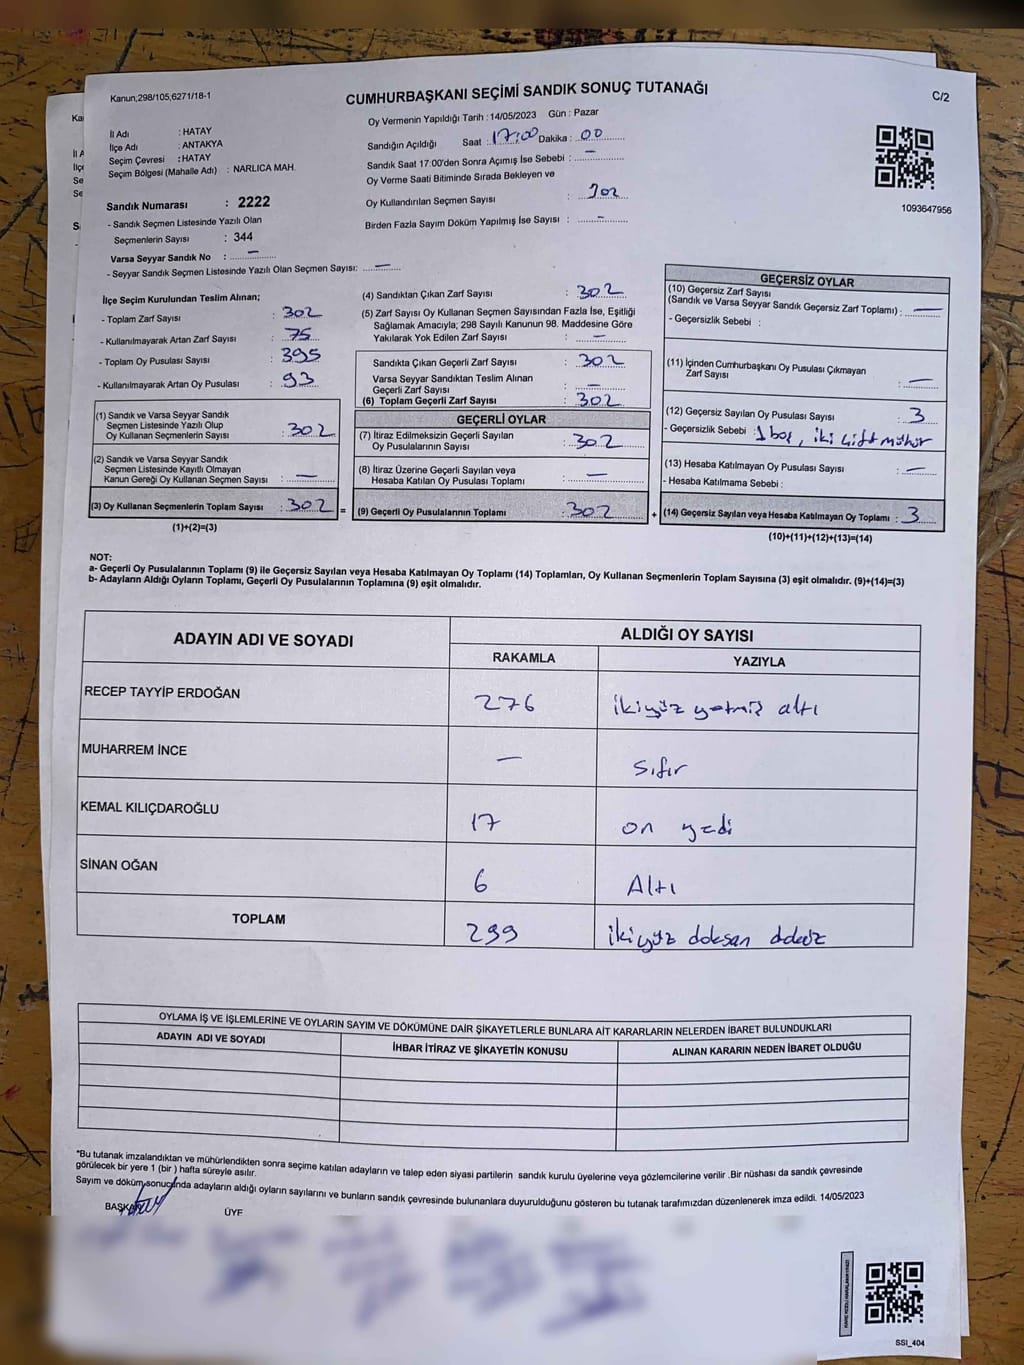 Kanun;298/105,6271/18-1
CUMHURBAŞKANI SEÇİMİ SANDIK SONUÇ TUTANAĞI
C/2
İl Adı : HATAY
İlçe Adı : ANTAKYA
Seçim Çevresi : HATAY
Seçim Bölgesi (Mahalle Adı) : NARLICA MAH.
Sandık Numarası : 2222
- Sandık Seçmen Listesinde Yazılı Olan
Seçmenlerin Sayısı : 344
Varsa Seyyar Sandık No : —
- Seyyar Sandık Seçmen Listesinde Yazılı Olan Seçmen Sayısı: —
Oy Vermenin Yapıldığı Tarih : 14/05/2023 Gün : Pazar
Sandığın Açıldığı Saat : 17:00 Dakika : 00
Sandık Saat 17:00'den Sonra Açımış İse Sebebi : —
Oy Verme Saati Bitiminde Sırada Bekleyen ve
Oy Kullandırılan Seçmen Sayısı : 302
Birden Fazla Sayım Döküm Yapılmış İse Sayısı : —
1093647956
İlçe Seçim Kurulundan Teslim Alınan;
- Toplam Zarf Sayısı : 302
- Kullanılmayarak Artan Zarf Sayısı : 75
- Toplam Oy Pusulası Sayısı : 395
- Kullanılmayarak Artan Oy Pusulası : 93
(1) Sandık ve Varsa Seyyar Sandık
Seçmen Listesinde Yazılı Olup
Oy Kullanan Seçmenlerin Sayısı : 302
(2) Sandık ve Varsa Seyyar Sandık
Seçmen Listesinde Kayıtlı Olmayan
Kanun Gereği Oy Kullanan Seçmen Sayısı : —
(3) Oy Kullanan Seçmenlerin Toplam Sayısı : 302 =
(1)+(2)=(3)
(4) Sandıktan Çıkan Zarf Sayısı : 302
(5) Zarf Sayısı Oy Kullanan Seçmen Sayısından Fazla İse, Eşitliği
Sağlamak Amacıyla; 298 Sayılı Kanunun 98. Maddesine Göre
Yakılarak Yok Edilen Zarf Sayısı : —
Sandıkta Çıkan Geçerli Zarf Sayısı : 302
Varsa Seyyar Sandıktan Teslim Alınan
Geçerli Zarf Sayısı : —
(6) Toplam Geçerli Zarf Sayısı : 302
GEÇERLİ OYLAR
(7) İtiraz Edilmeksizin Geçerli Sayılan
Oy Pusulalarının Sayısı : 302
(8) İtiraz Üzerine Geçerli Sayılan veya
Hesaba Katılan Oy Pusulası Toplamı : —
(9) Geçerli Oy Pusulalarının Toplamı : 302 +
GEÇERSİZ OYLAR
(10) Geçersiz Zarf Sayısı
(Sandık ve Varsa Seyyar Sandık Geçersiz Zarf Toplamı) : —
- Geçersizlik Sebebi :
(11) İçinden Cumhurbaşkanı Oy Pusulası Çıkmayan
Zarf Sayısı : —
(12) Geçersiz Sayılan Oy Pusulası Sayısı : 3
- Geçersizlik Sebebi : 1 boş, iki çift mühür
(13) Hesaba Katılmayan Oy Pusulası Sayısı : —
- Hesaba Katılmama Sebebi :
(14) Geçersiz Sayılan veya Hesaba Katılmayan Oy Toplamı : 3
(10)+(11)+(12)+(13)=(14)
NOT:
a- Geçerli Oy Pusulalarının Toplamı (9) ile Geçersiz Sayılan veya Hesaba Katılmayan Oy Toplamı (14) Toplamları, Oy Kullanan Seçmenlerin Toplam Sayısına (3) eşit olmalıdır. (9)+(14)=(3)
b- Adayların Aldığı Oyların Toplamı, Geçerli Oy Pusulalarının Toplamına (9) eşit olmalıdır.
ADAYIN ADI VE SOYADI
ALDIĞI OY SAYISI
RAKAMLA YAZIYLA
RECEP TAYYİP ERDOĞAN 276 ikiyüz yetmiş altı
MUHARREM İNCE — sıfır
KEMAL KILIÇDAROĞLU 17 on yedi
SİNAN OĞAN 6 Altı
TOPLAM 299 ikiyüz doksan dokuz
OYLAMA İŞ VE İŞLEMLERİNE VE OYLARIN SAYIM VE DÖKÜMÜNE DAİR ŞİKAYETLERLE BUNLARA AİT KARARLARIN NELERDEN İBARET BULUNDUKLARI
ADAYIN ADI VE SOYADI İHBAR İTİRAZ VE ŞİKAYETİN KONUSU ALINAN KARARIN NEDEN İBARET OLDUĞU
*Bu tutanak imzalandıktan ve mühürlendikten sonra seçime katılan adayların ve talep eden siyasi partilerin sandık kurulu üyelerine veya gözlemcilerine verilir .Bir nüshası da sandık çevresinde
görülecek bir yere 1 (bir ) hafta süreyle asılır.
Sayım ve döküm sonucunda adayların aldığı oyların sayılarını ve bunların sandık çevresinde bulunanlara duyurulduğunu gösteren bu tutanak tarafımızdan düzenlenerek imza edildi. 14/05/2023
BAŞKAN ÜYE
SSI_404